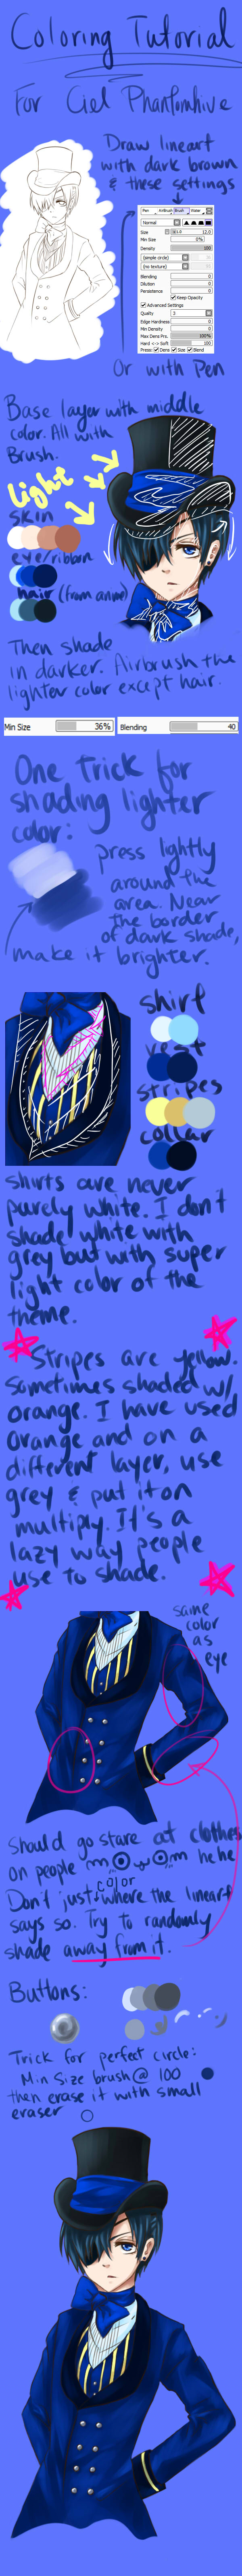 Coloring Tutorial
For Ciel Phantomhive
Draw lineart
with dark brown
& these settings
Pen AirBrush Brush Water
Normal
Size 12.0
Min Size 0%
Density 100
(simple circle)
(no texture)
Blending 0
Dilution 0
Persistence 0
Keep Opacity
Advanced Settings
Quality 3
Edge Hardness 0
Min Density 0
Max Dens Prs. 100%
Hard <-> Soft 100
Press: Dens Size Blend
Or with Pen
Base layer with middle
color. All with
Brush.
Light
skin
eye/ribbon
hair (from anime)
Then shade
in darker. Airbrush the
lighter color except hair.
Min Size 36% Blending 40
One Trick for
shading lighter
color:
press lightly
around the
area. Near
the border
of dark shade,
make it brighter.
shirt
vest
stripes
collar
shirts are never
purely white. I don't
shade white with
grey but with super
light color of the
theme.
Stripes are yellow.
Sometimes shaded w/
orange. I have used
orange and on a
different layer, use
grey & put it on
multiply. It's a
lazy way people
use to shade.
same
color
as
eye
Should go stare at clothes
on people he he
color
Don't just where the lineart
says so. Try to randomly
shade away from it.
Buttons:
Trick for perfect circle:
Min Size brush @ 100
then erase it with small
eraser